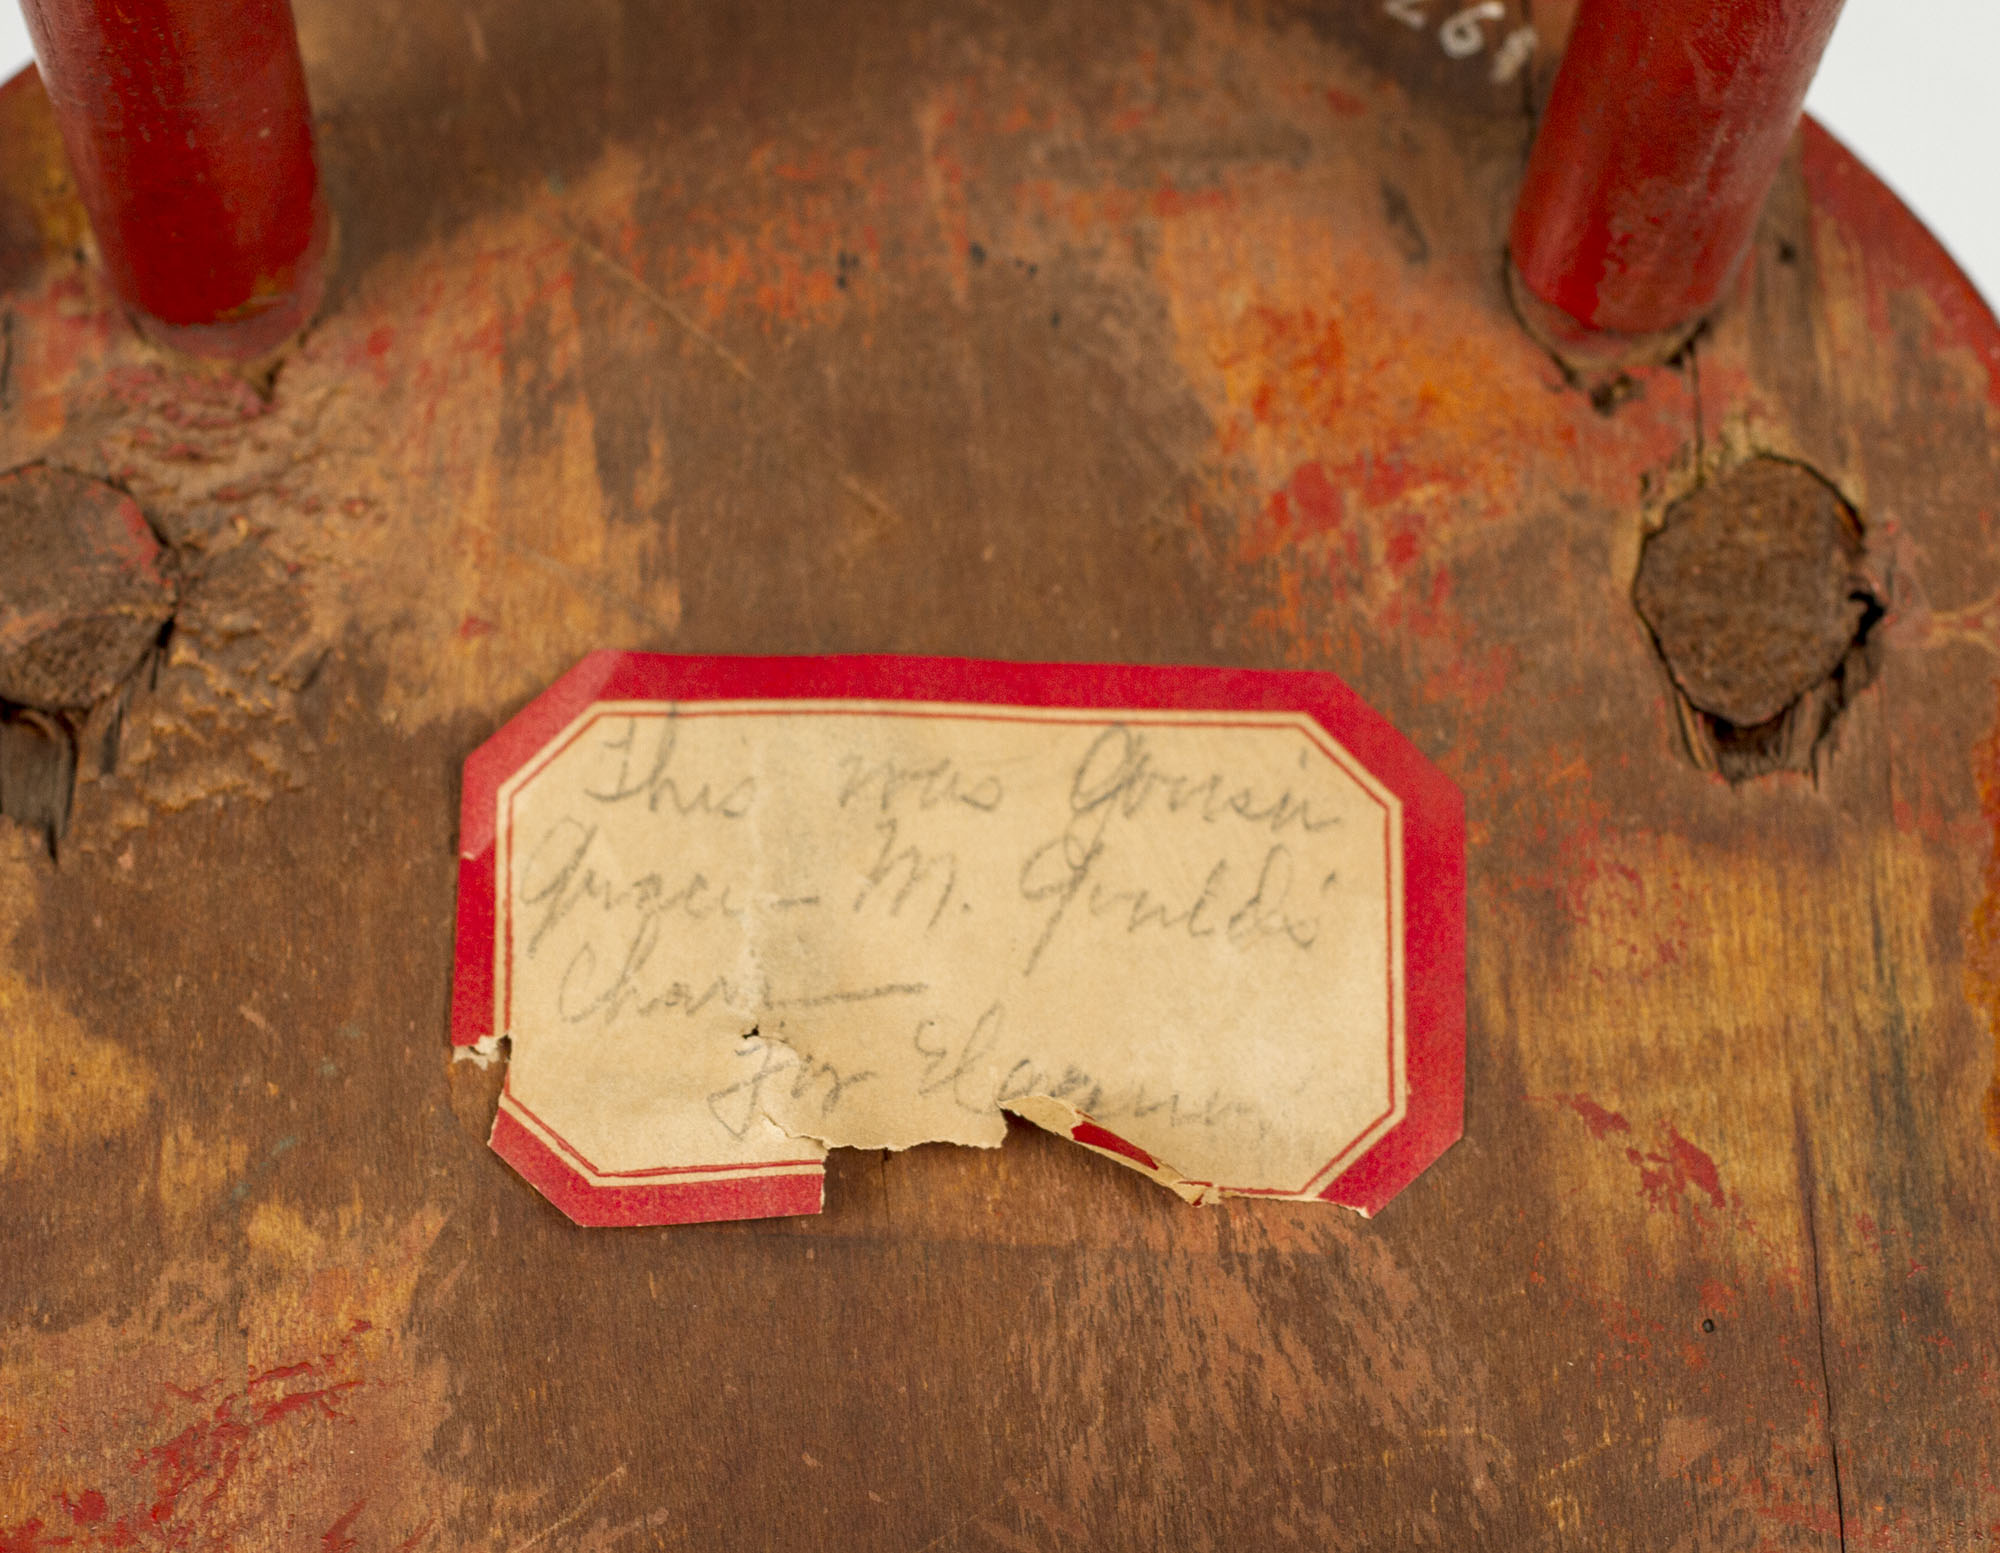 268
This was Cousin
Grace - M. Gould's
Chair
For Eleanor